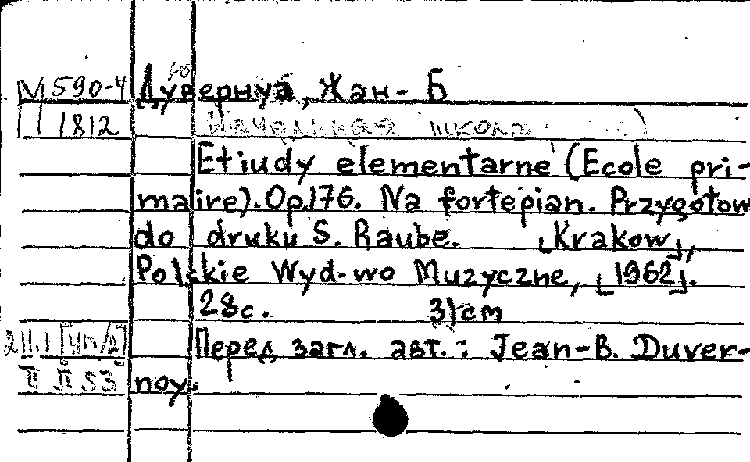 М 590-4 Дувернуа, Жан- Б
1812 Начальная школа
Etiudy elementarne (Ecole pri-
maire). Op.176. Na fortepian. Przygotow
do druku S. Raube. [Krakow],
Polskie Wyd-wo Muzyczne, [1962].
28с. 31cm
Перед загл. авт.: Jean-B. Duver-
noy.